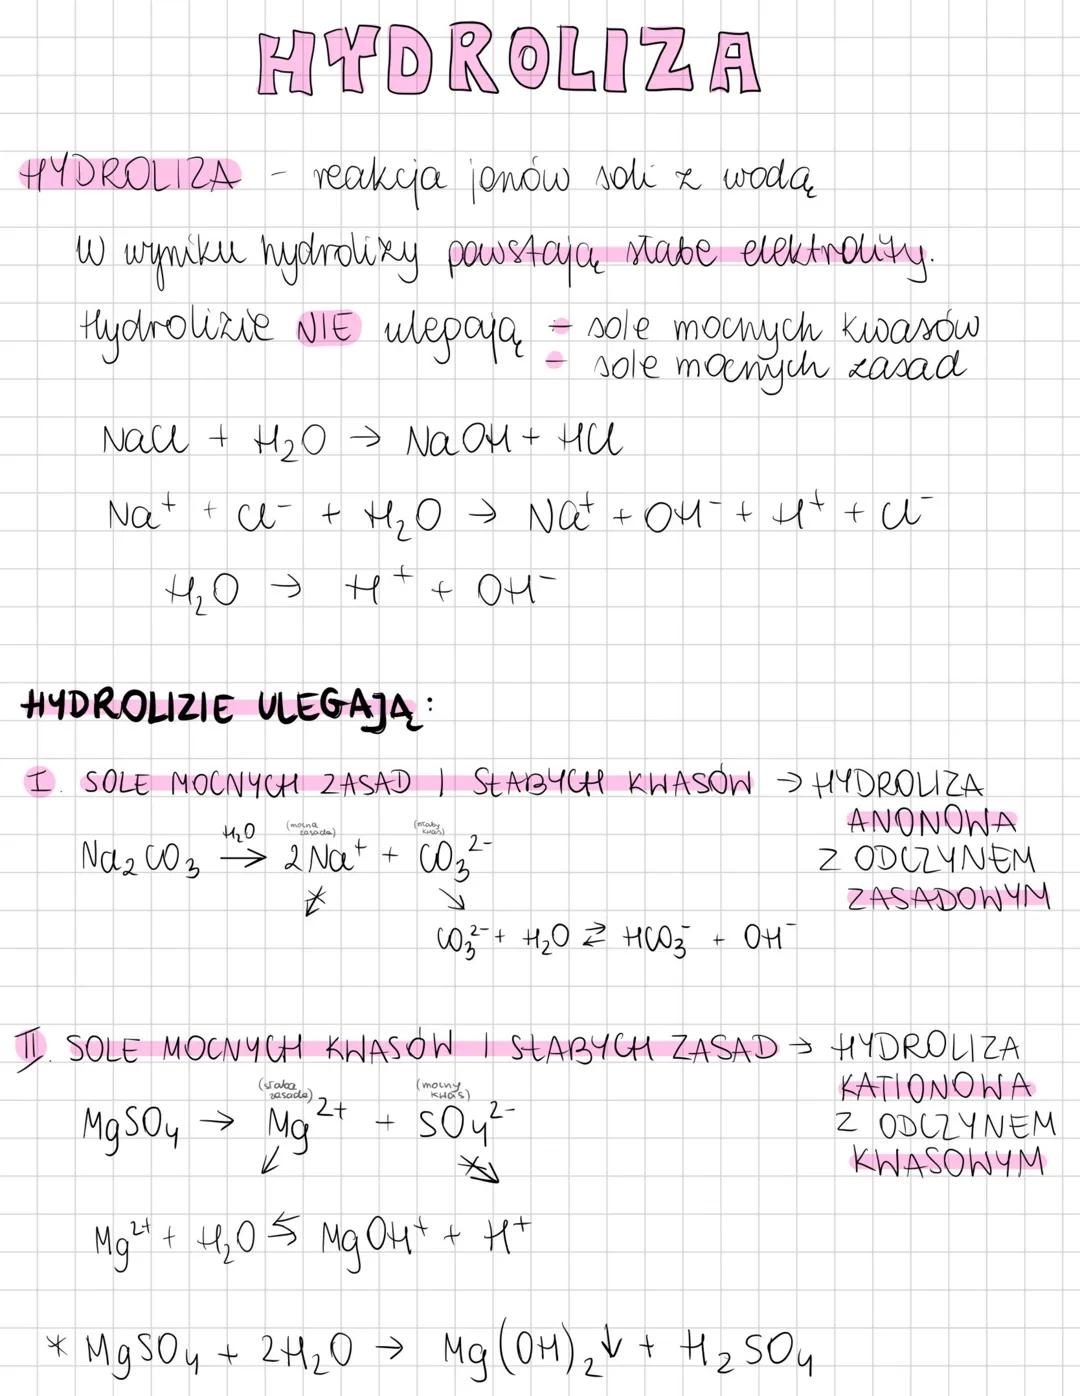 HYDROLIZA
HYDROLIZA - reakcja jonów soli z wodą
W wyniku hydrolizy powstają słabe elektrolity.
Hydrolizie NIE ulegają - sole mocnych kwasów
- sole mocnych zasad
NaCl + H₂O → NaOH + HCl
Na⁺ + Cl⁻ + H₂O → Na⁺ + OH⁻ + H⁺ + Cl⁻
H₂O → H⁺ + OH⁻
HYDROLIZIE ULEGAJĄ:
I. SOLE MOCNYCH ZASAD I SŁABYCH KWASÓW → HYDROLIZA
ANONOWA
Z ODCZYNEM
ZASADOWYM
(mocna zasada) (słaby kwas)
Na₂CO₃ H₂O→ 2Na⁺ + CO₃²⁻
CO₃²⁻ + H₂O ⇄ HCO₃⁻ + OH⁻
II. SOLE MOCNYCH KWASÓW I SŁABYCH ZASAD → HYDROLIZA
KATIONOWA
Z ODCZYNEM
KWASOWYM
(słaba zasada) (mocny kwas)
MgSO₄ → Mg²⁺ + SO₄²⁻
Mg²⁺ + H₂O ⇆ MgOH⁺ + H⁺
* MgSO₄ + 2H₂O → Mg(OH)₂↓ + H₂SO₄